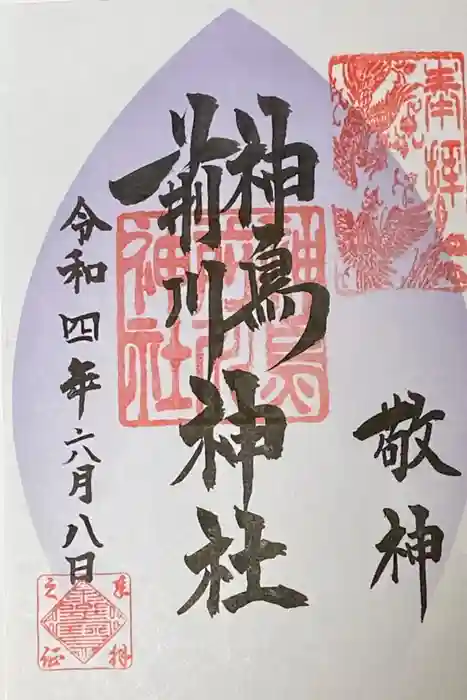 奉拝
敬神
神鳥
前川神社
神鳥
前川
神社
令和四年六月八日